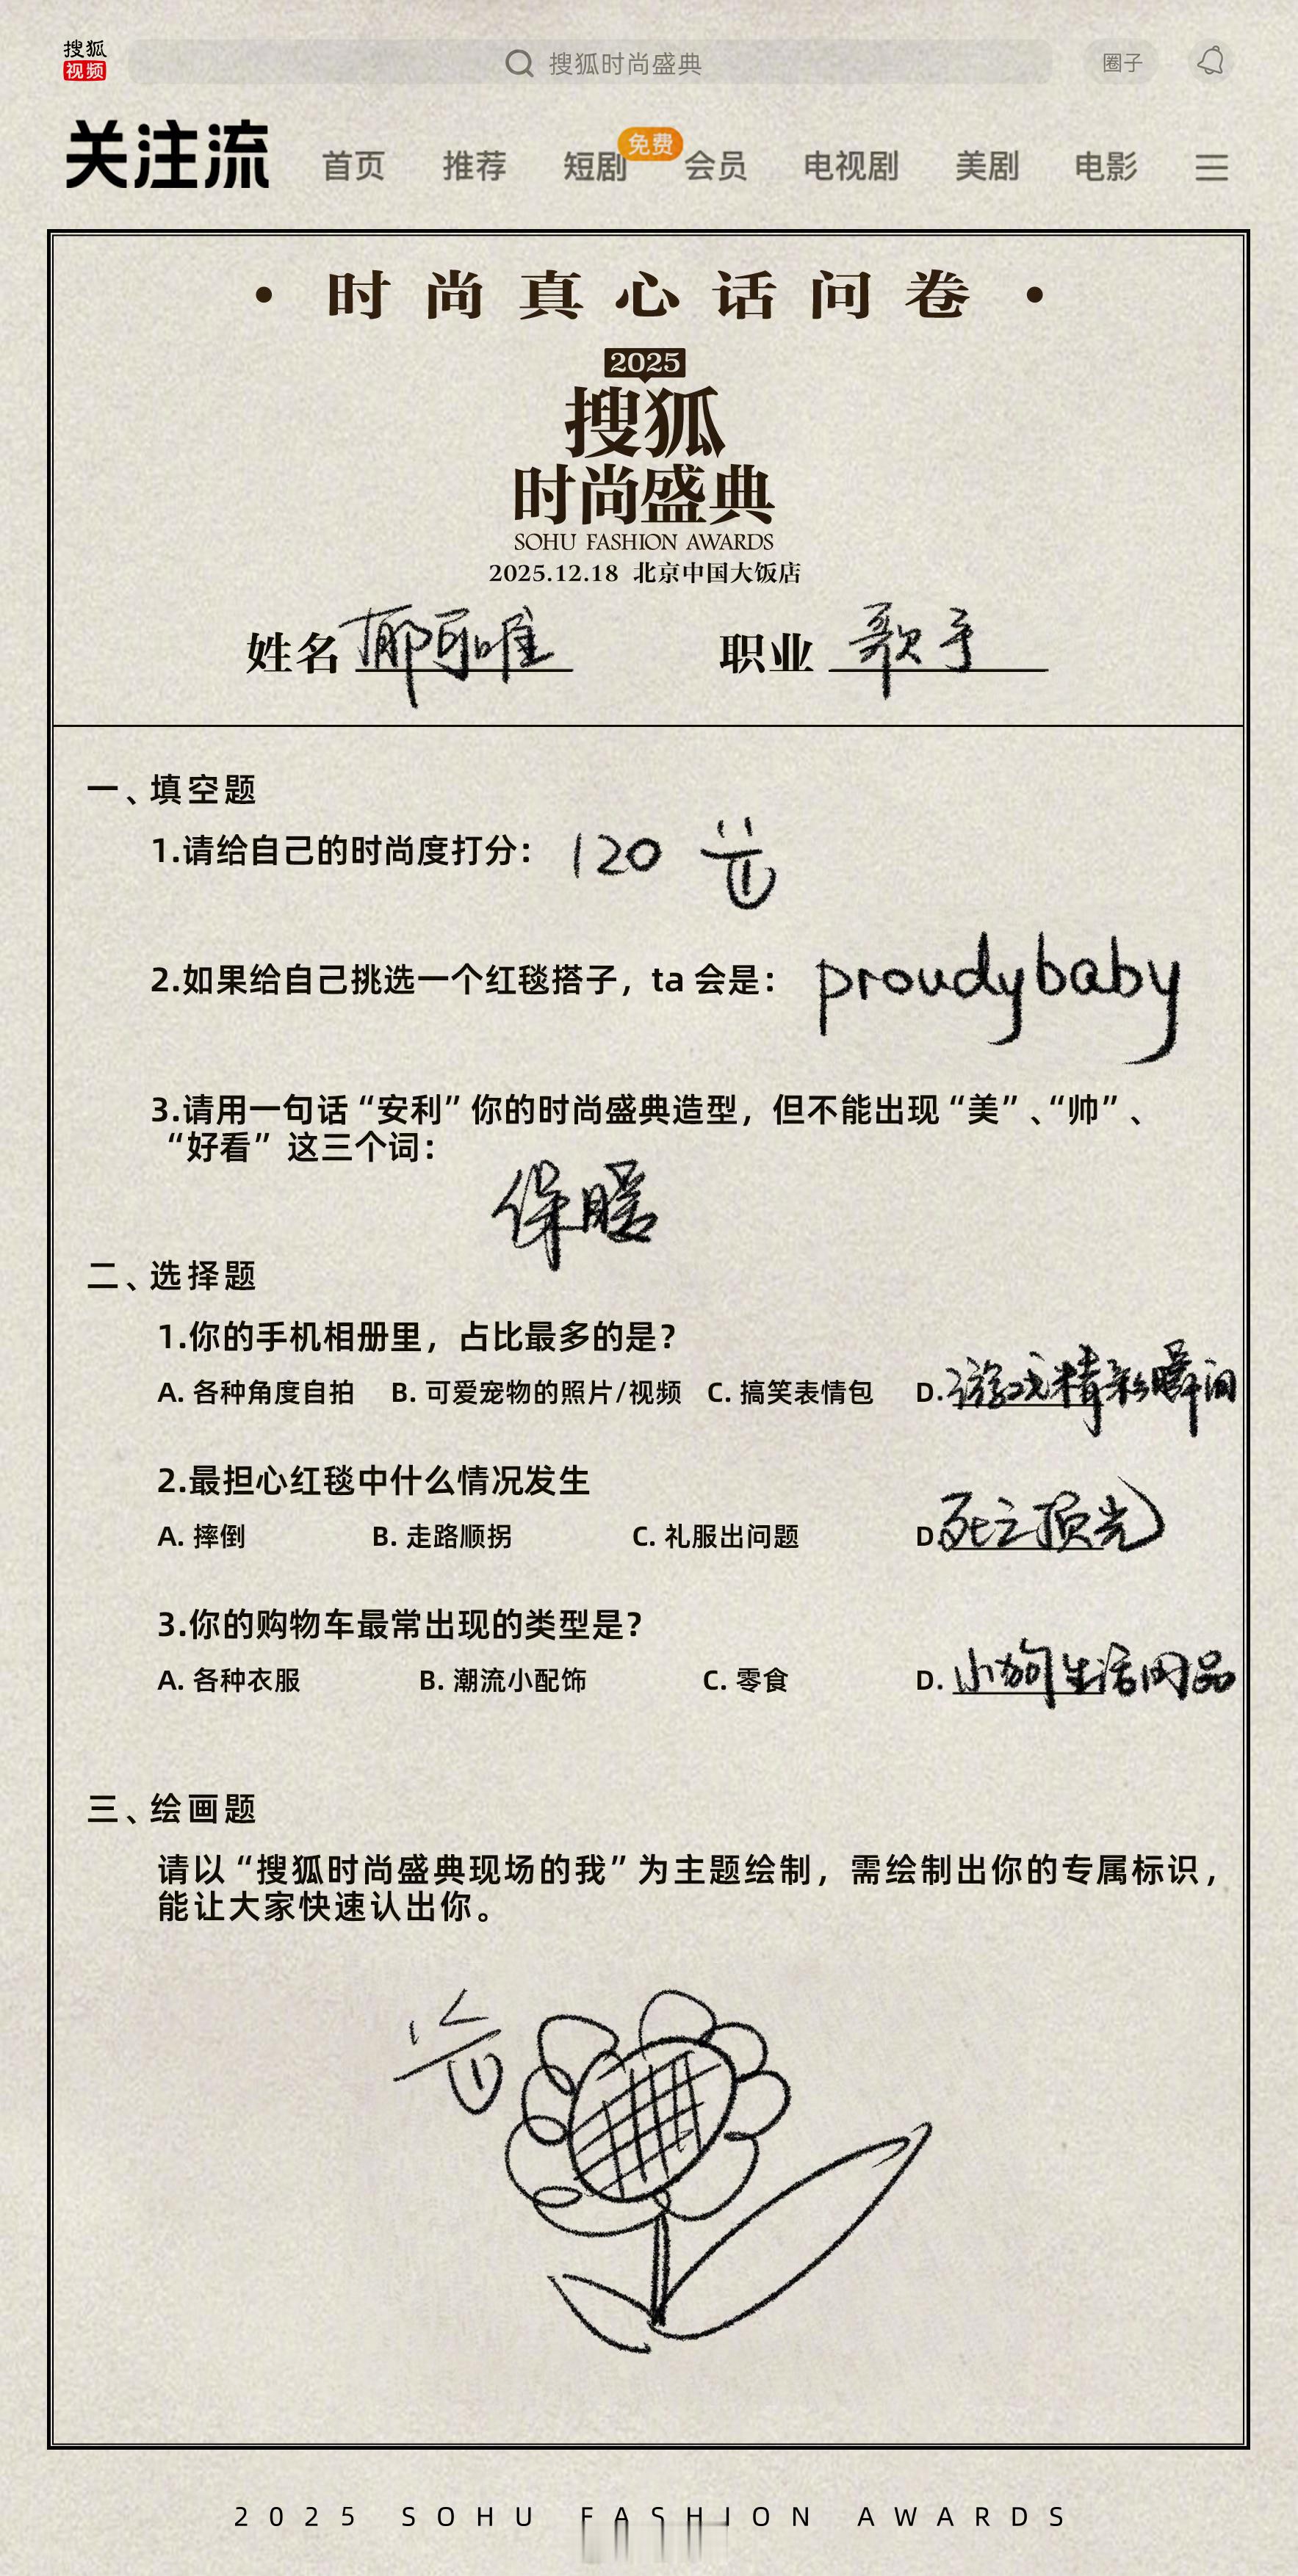 搜狐
视频
搜狐时尚盛典
圈子
关注流 首页 推荐 短剧 免费 会员 电视剧 美剧 电影
·时尚真心话问卷·
2025
搜狐
时尚盛典
SOHU FASHION AWARDS
2025.12.18 北京中国大饭店
姓名 郁可唯 职业 歌手
一、填空题
1.请给自己的时尚度打分： 120
2.如果给自己挑选一个红毯搭子，ta 会是： proudybaby
3.请用一句话“安利”你的时尚盛典造型，但不能出现“美”、“帅”、
“好看” 这三个词：
保暖
二、选择题
1.你的手机相册里，占比最多的是？
A. 各种角度自拍 B. 可爱宠物的照片/视频 C. 搞笑表情包 D. 游戏精彩瞬间
2.最担心红毯中什么情况发生
A. 摔倒 B. 走路顺拐 C. 礼服出问题 D. 死亡顶光
3.你的购物车最常出现的类型是？
A. 各种衣服 B. 潮流小配饰 C. 零食 D. 小狗生活用品
三、绘画题
请以“搜狐时尚盛典现场的我”为主题绘制，需绘制出你的专属标识，
能让大家快速认出你。
2025 SOHU FASHION AWARDS